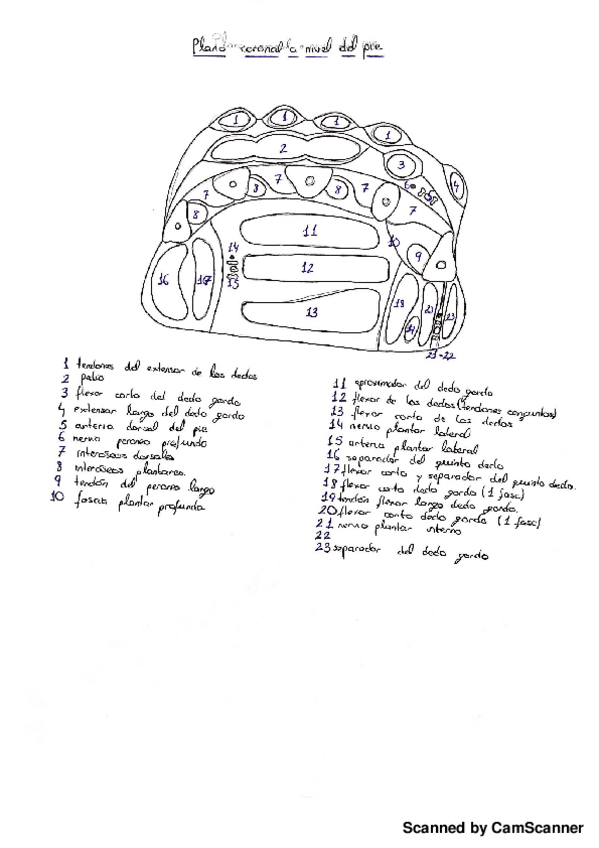 Plano coronal a nivel del pie
1 1 1 1
2
3
4
6
5
7 8 7 8 7 7
8
10
9
11
14
12
15
16 17
13
18
19
20
23
21-22
1 tendones del extensor de los dedos
2 pedio
3 flexor corto del dedo gordo
4 extensor largo del dedo gordo
5 arteria dorsal del pie
6 nervio peroneo profundo
7 interóseos dorsales
8 interóseos plantares.
9 tendón del peroneo largo
10 fascia plantar profunda
11 aproximador del dedo gordo
12 flexor de los dedos (tendones conjuntos)
13 flexor corto de los dedos
14 nervio plantar lateral
15 arteria plantar lateral
16 separador del quinto dedo
17 flexor corto y separador del quinto dedo.
18 flexor corto dedo gordo (1 fasc)
19 tendón flexor largo dedo gordo.
20 flexor corto dedo gordo (1 fasc)
21 nervio plantar interno
22
23 separador del dedo gordo
Scanned by CamScanner